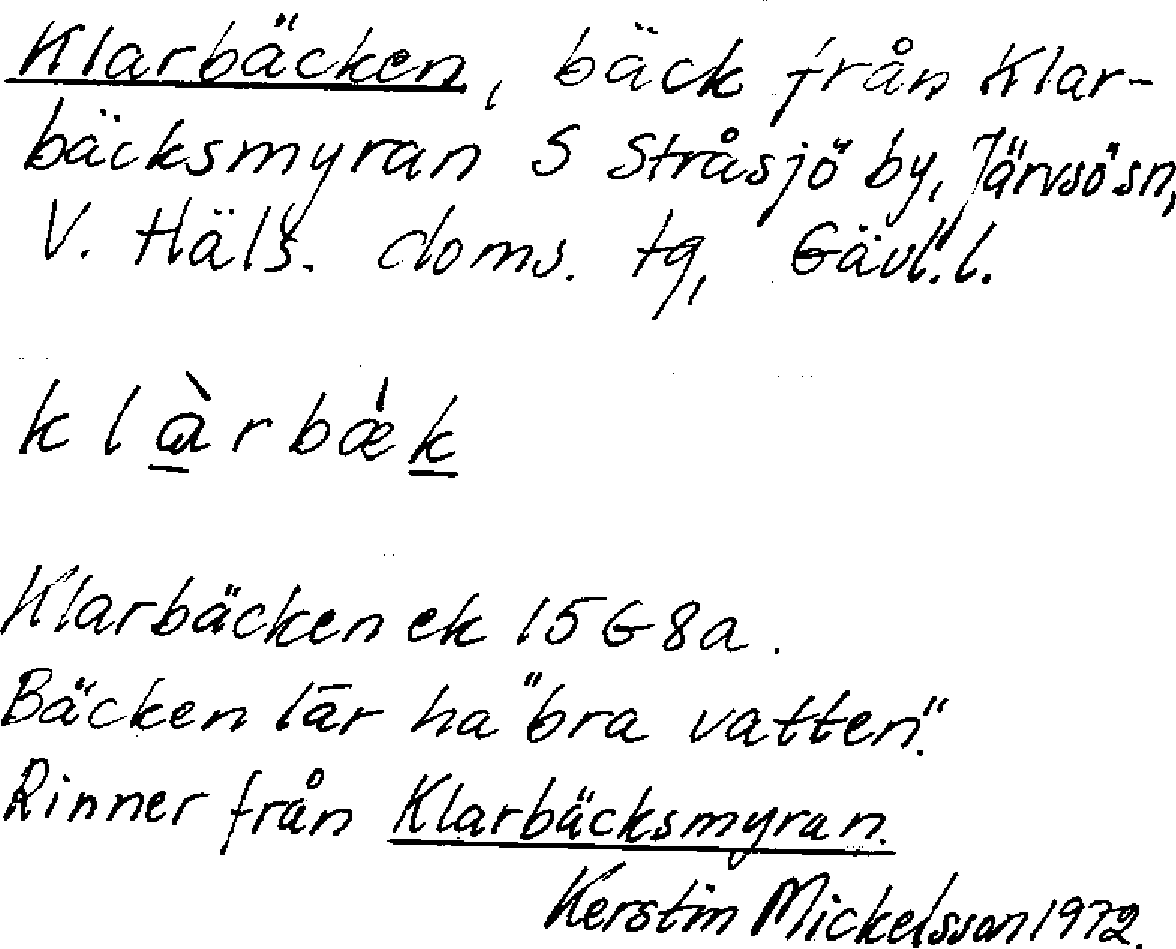 Klarbäcken, bäck från Klar-
bäcksmyran S Stråsjö by, Järvsö sn,
V. Häls. doms. tg, Gävl. l.
klàrbǽk
Klarbäcken ek 15G8a.
Bäcken lär ha "bra vatten".
Rinner från Klarbäcksmyran.
Kerstin Mickelsson 1972.